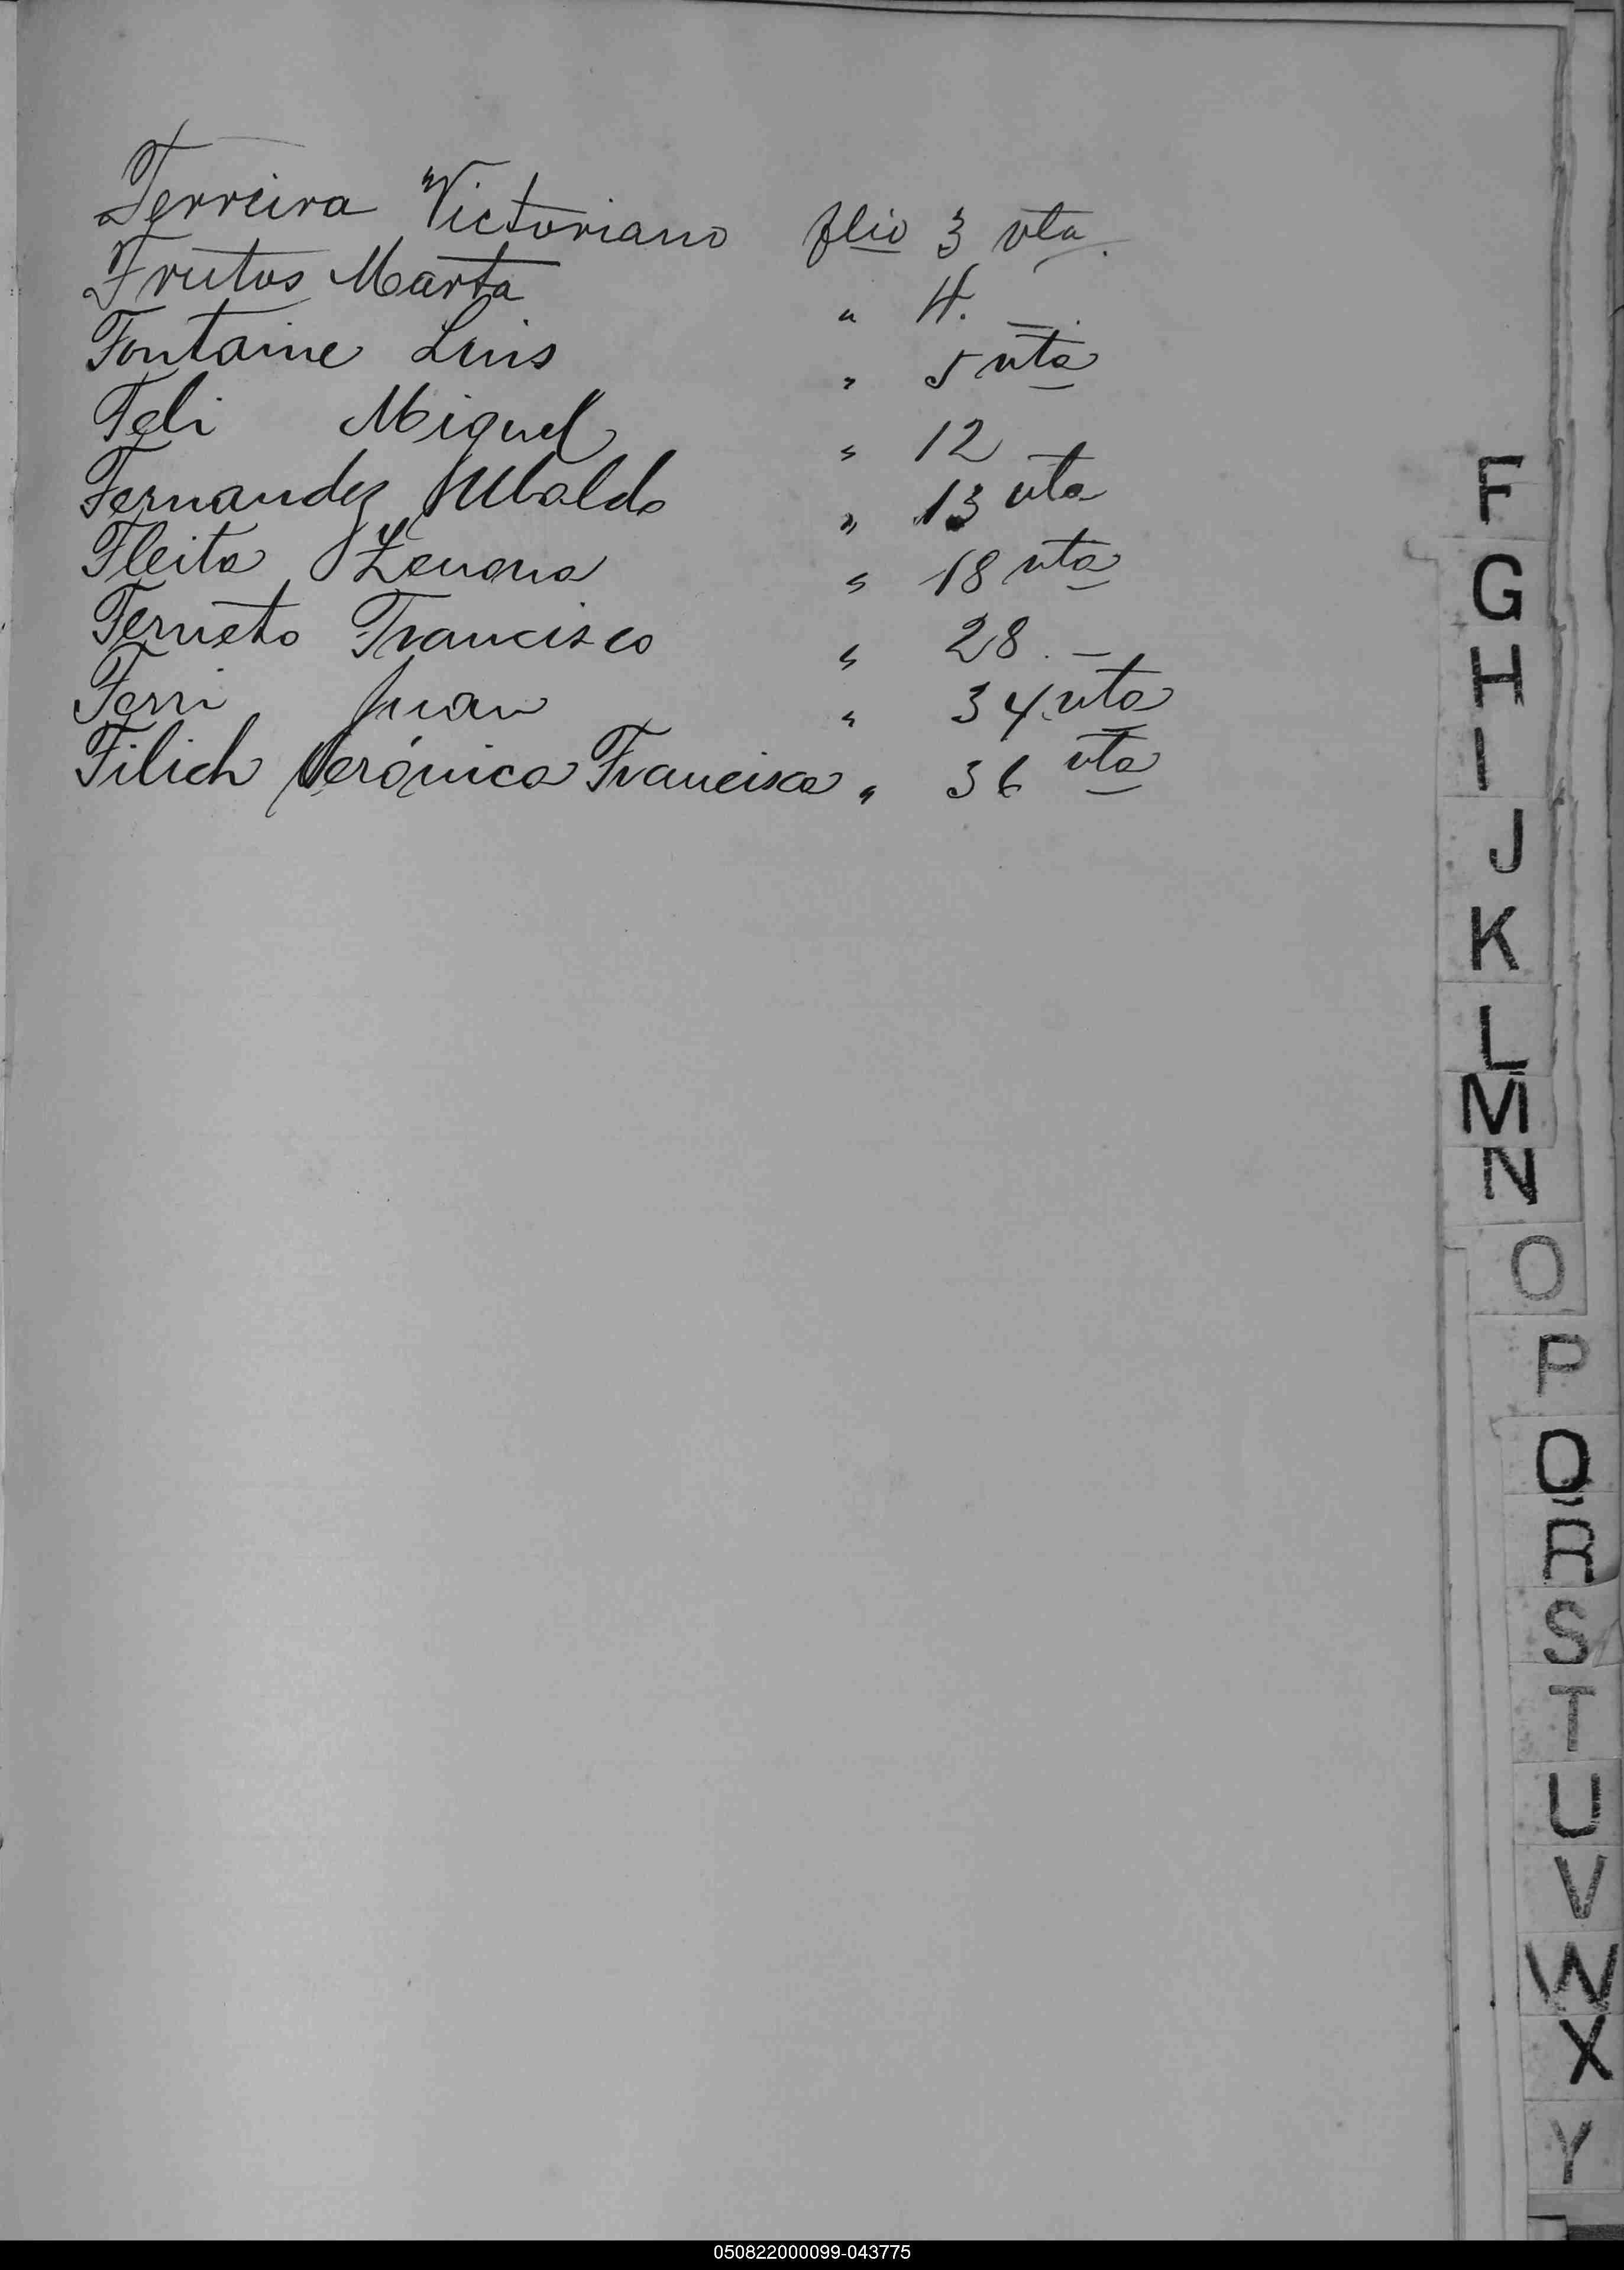 Ferreira Victoriano flio 3 vta.
Frutos Marta " 4. —.
Fontaine Luis " 5 vta
Feli Miguel " 12
Fernandez Ubaldo " 13 vta
Fleita Zenona " 18 vta
Ferneto Francisco " 28. —
Ferri Juan " 34 vta
Filich Verónica Francisca " 36 vta
F
G
H
I
J
K
L
M
N
O
P
Q
R
S
T
U
V
W
X
Y
050822000099-043775